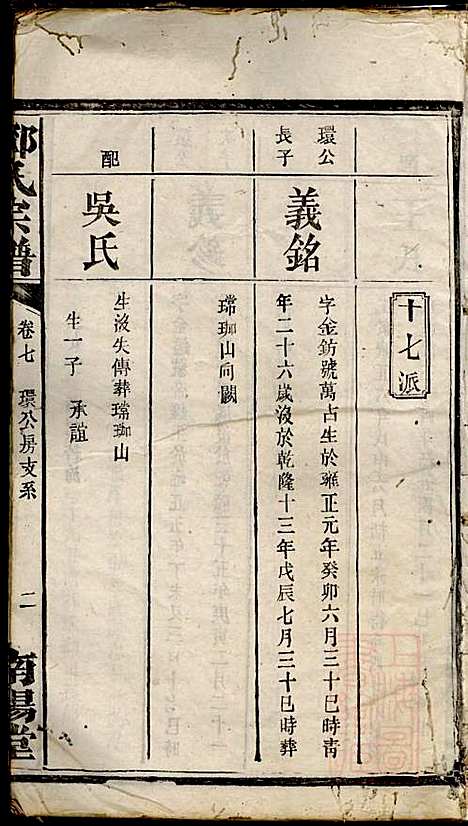 十七派
環公
長子
義銘
字金鈁號萬占生於雍正元年癸卯六月三十巳時青
年二十六歲沒於乾隆十三年戊辰七月三十巳時葬
瑺珈山向闕
配
吳氏
生沒失傳葬瑺珈山
生一子 承誼
氏宗譜
卷七 環公房支系
二
南陽堂